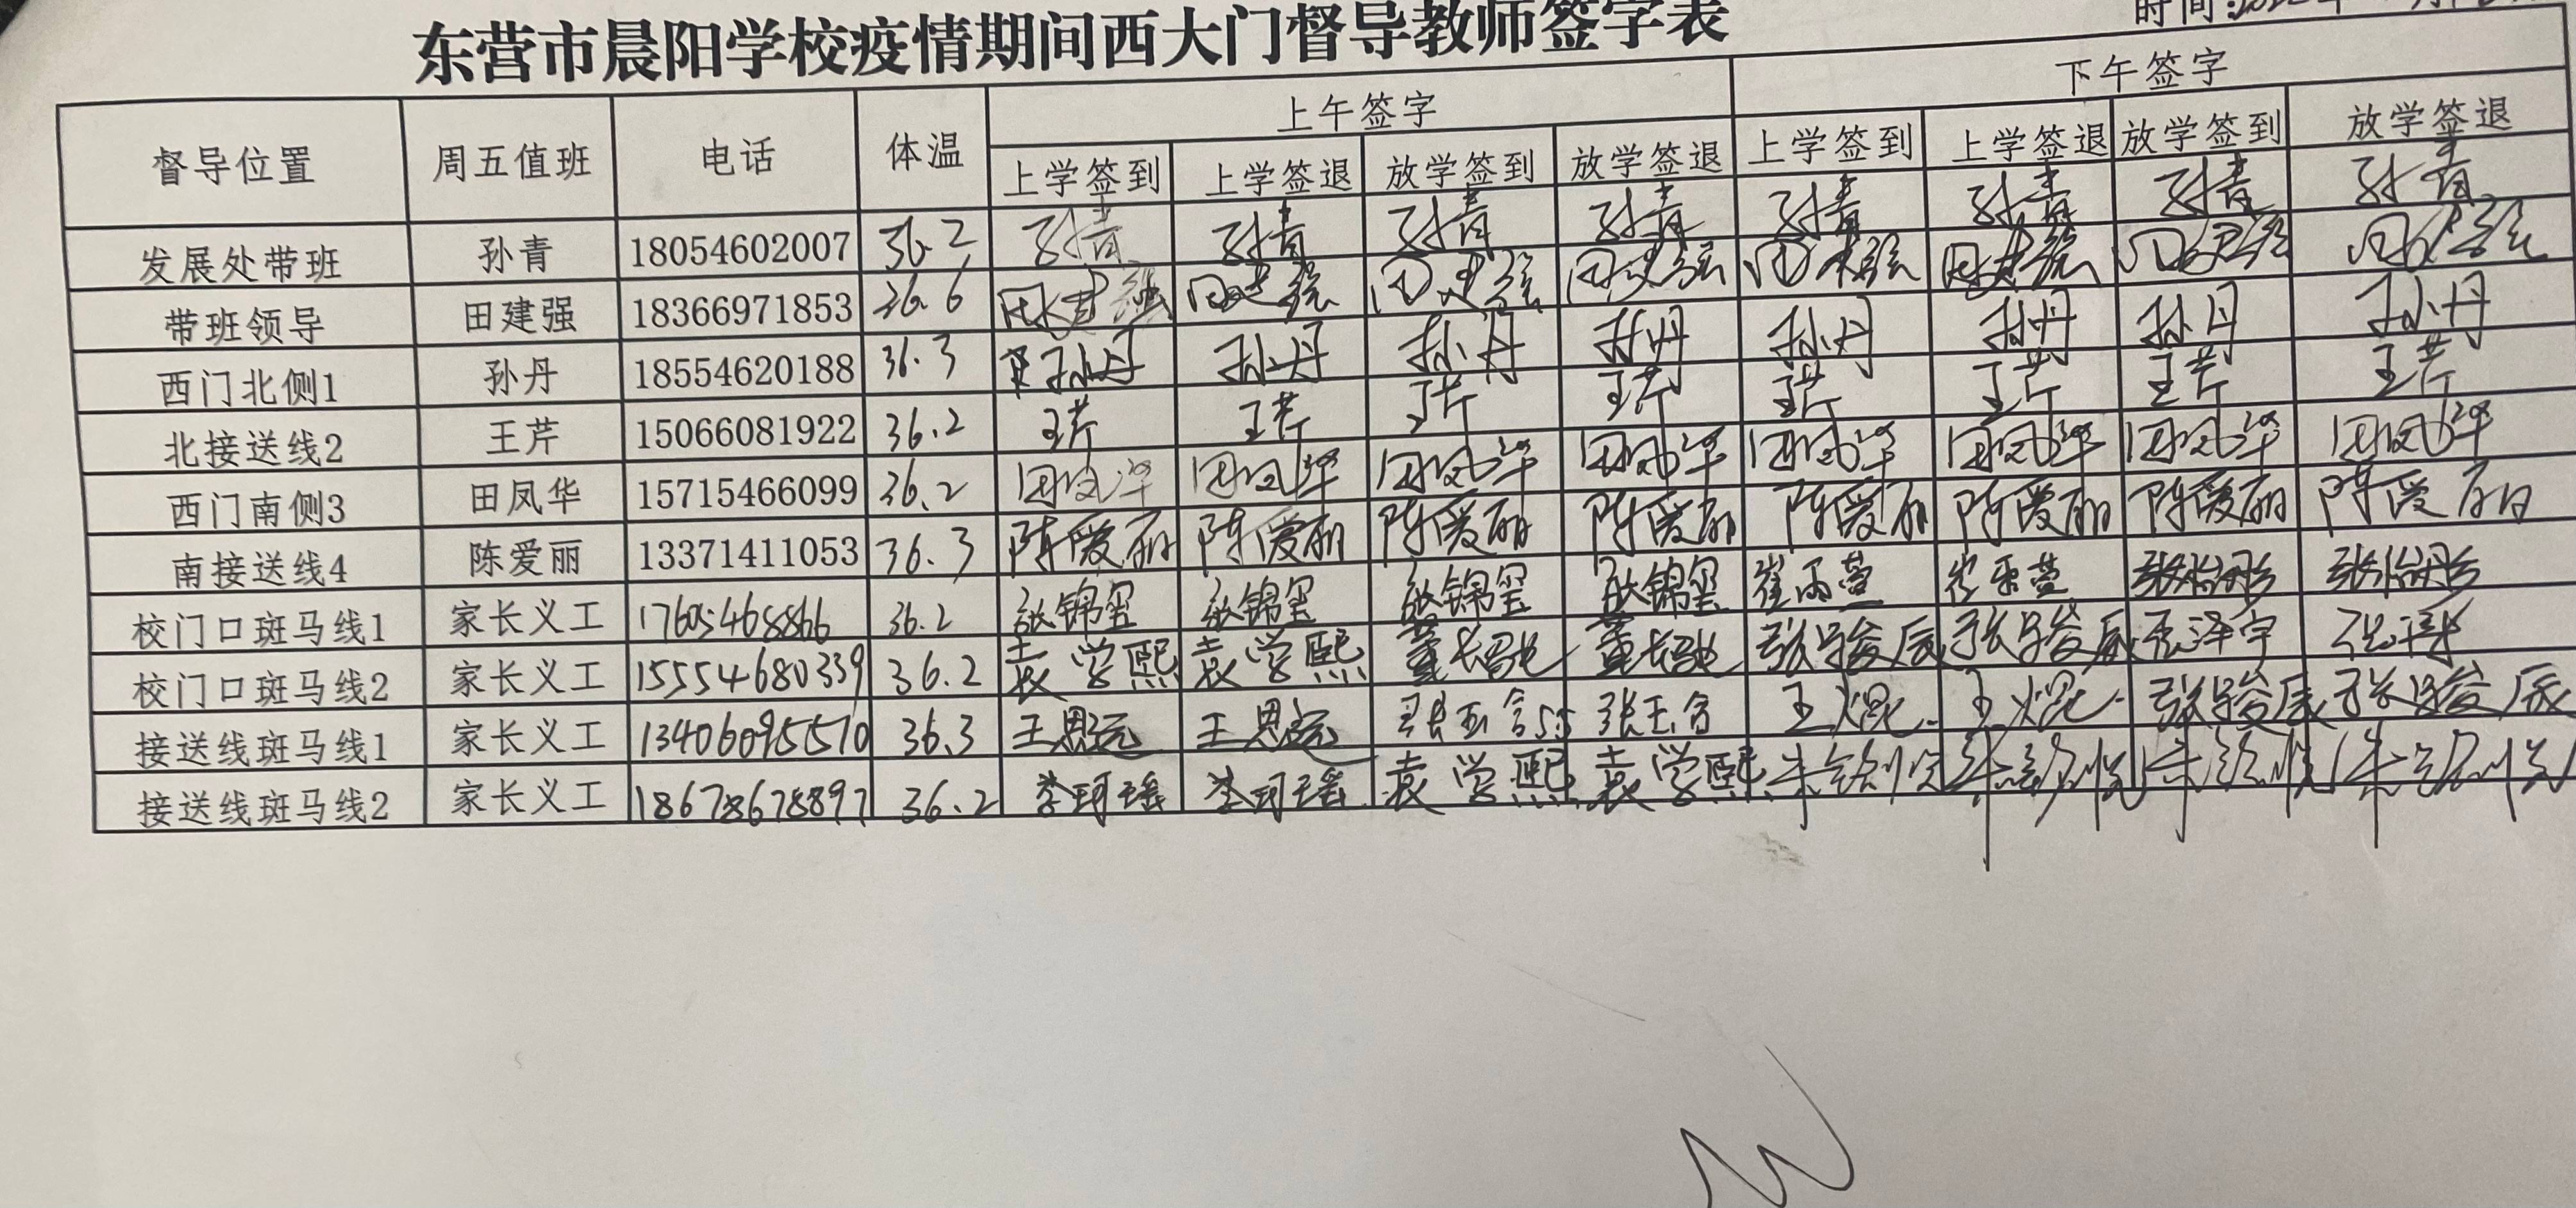 东营市晨阳学校疫情期间西大门督导教师签字表
时间:
督导位置 周五值班 电话 体温 上午签字 下午签字
上学签到 上学签退 放学签到 放学签退 上学签到 上学签退 放学签到 放学签退
发展处带班 孙青 18054602007 36.2 孙青 孙青 孙青 孙青 孙青 孙青 孙青 孙青
带班领导 田建强 18366971853 36.6 田建强 田建强 田建强 田建强 田建强 田建强 田建强 田建强
西门北侧1 孙丹 18554620188 36.3 孙丹 孙丹 孙丹 孙丹 孙丹 孙丹 孙丹 孙丹
北接送线2 王芹 15066081922 36.2 王芹 王芹 王芹 王芹 王芹 王芹 王芹 王芹
西门南侧3 田凤华 15715466099 36.2 田凤华 田凤华 田凤华 田凤华 田凤华 田凤华 田凤华 田凤华
南接送线4 陈爱丽 13371411053 36.3 陈爱丽 陈爱丽 陈爱丽 陈爱丽 陈爱丽 陈爱丽 陈爱丽 陈爱丽
校门口斑马线1 家长义工 17605468866 36.2 张锦玺 张锦玺 张锦玺 张锦玺 崔雨萱 崔雨萱
校门口斑马线2 家长义工 15554680339 36.2 袁学熙 袁学熙 张峻辰 张峻辰
接送线斑马线1 家长义工 13406095570 36.3 王恩远 王恩远 张玉含 张玉含 王焜 王焜 张峻辰 张峻辰
接送线斑马线2 家长义工 18678678897 36.2 李珂瑶 李珂瑶 袁学熙 袁学熙